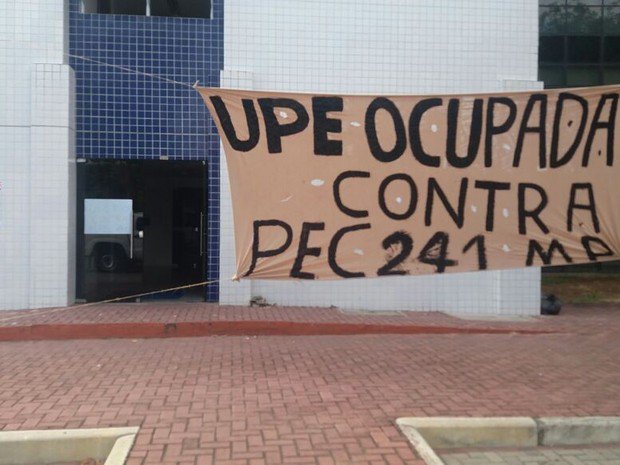 UPE OCUPADA
CONTRA
PEC 241 MP